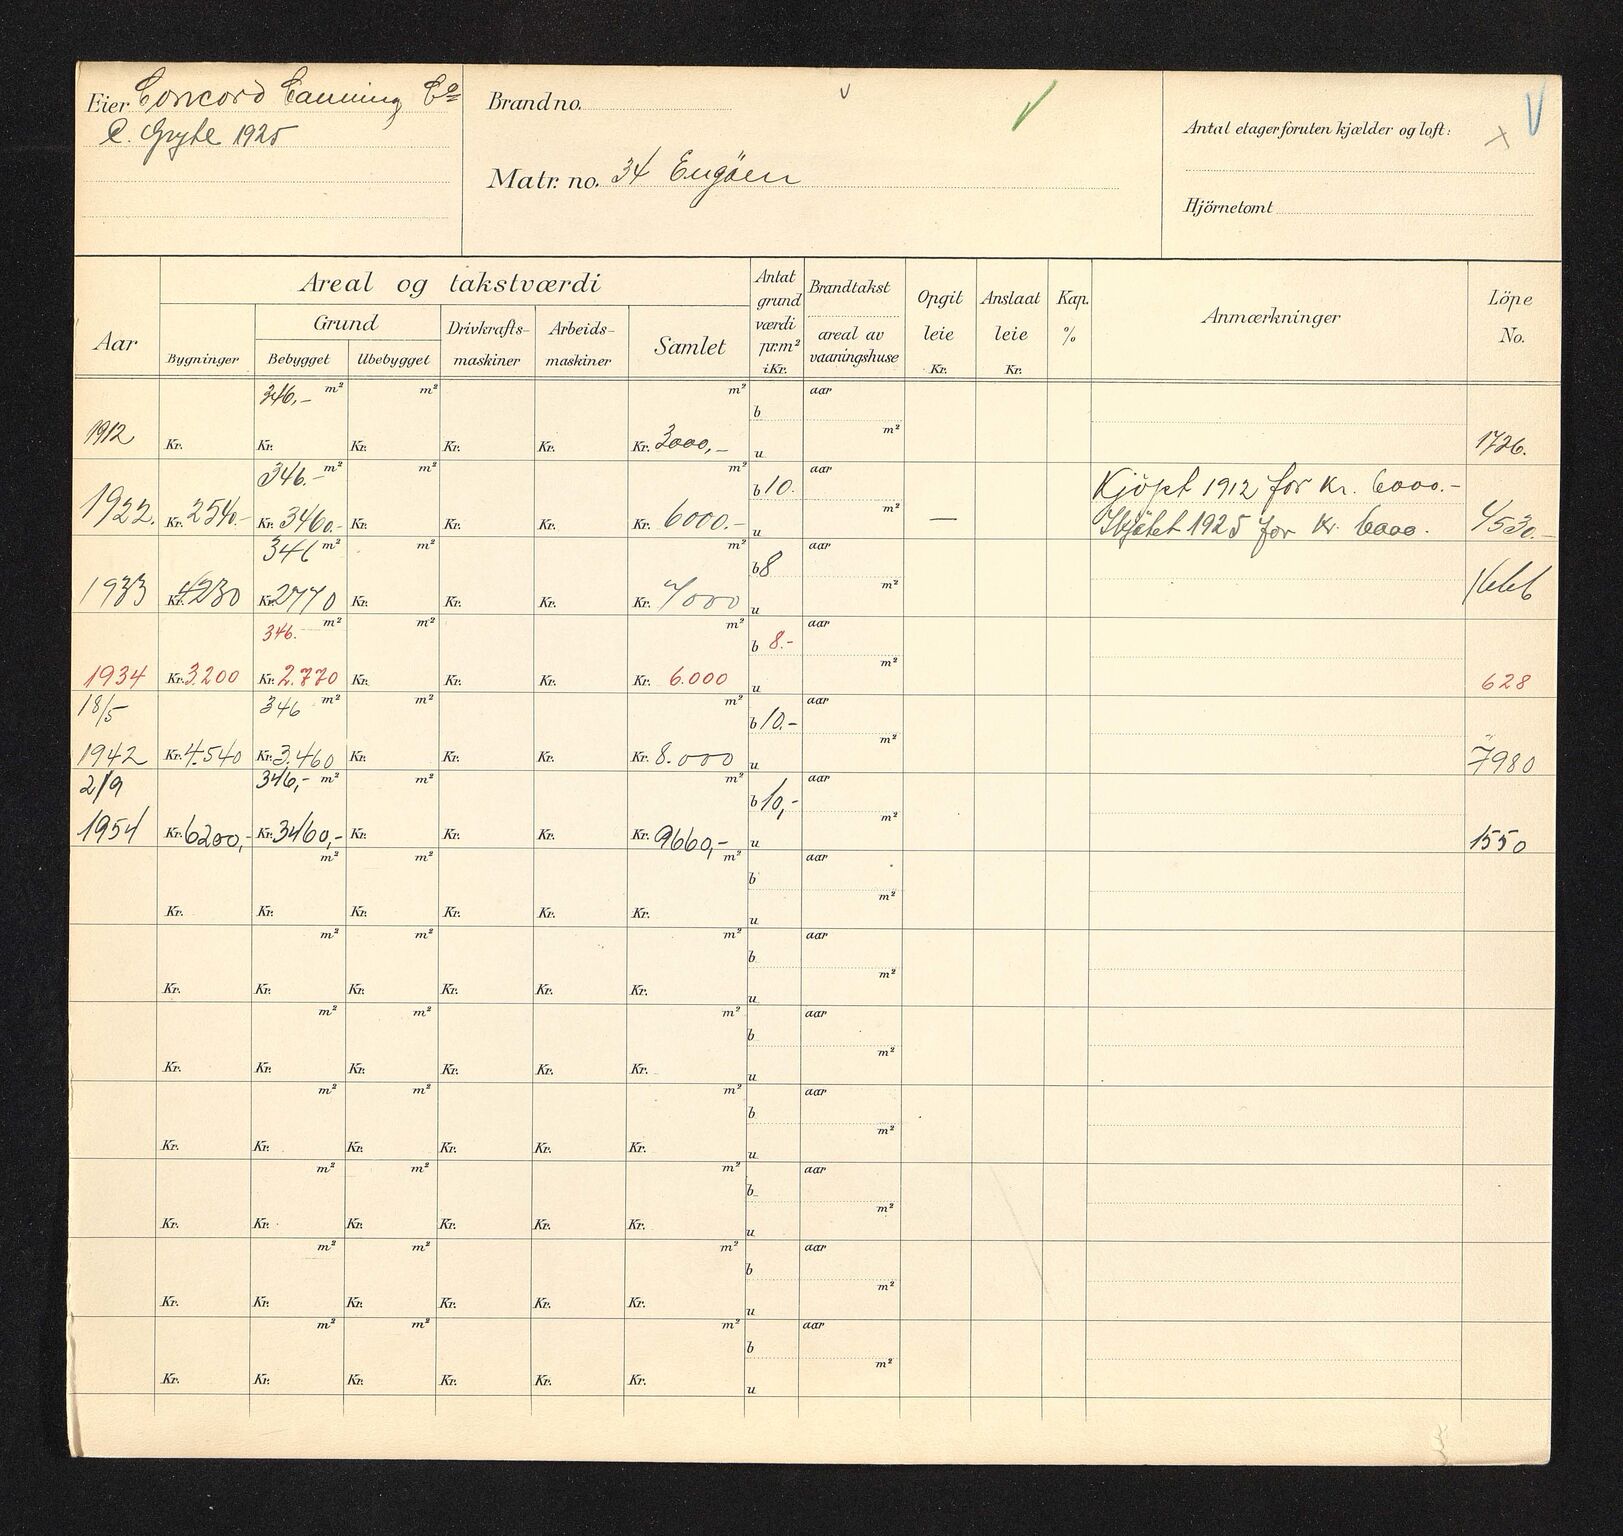 Eier Concord Canning Co
C. Gryte 1925
Brand no.
Matr. no. 34 Engöen
Antal etager foruten kjælder og loft:
Hjörnetomt
Aar
Areal og takstværdi
Bygninger
Grund
Bebygget
Ubebygget
Drivkrafts-
maskiner
Arbeids-
maskiner
Samlet
Antat
grund
værdi
pr. m²
i Kr.
Brandtakst
areal av
vaaningshuse
Opgit
leie
Kr.
Anslaat
leie
Kr.
Kap.
%
Anmærkninger
Löpe
No.
346,- m² m² m² b aar
1912 Kr. Kr. Kr. Kr. Kr. Kr. 3000,- u m² 1726.
346.- m² m² m² b 10. aar Kjöpt 1912 for Kr. 6000.-
1922. Kr. 2540.- Kr. 3460.- Kr. Kr. Kr. Kr. 6000.- u m² — Skjötet 1925 for Kr. 6000. 4530.-
346 m² m² m² b 8 aar
1933 Kr. 4230 Kr. 2770 Kr. Kr. Kr. Kr. 7000 u m² 1666
346. m² m² m² b 8.- aar
1934 Kr. 3200 Kr. 2.770 Kr. Kr. Kr. Kr. 6.000 u m² 628
18/5 346 m² m² m² b 10.- aar
1942 Kr. 4.540 Kr. 3.460 Kr. Kr. Kr. Kr. 8.000 u m² 7980
2/9 346,- m² m² m² b 10,- aar
1954 Kr. 6200,- Kr. 3460,- Kr. Kr. Kr. Kr. 9660,- u m² 1550
m² m² m² b aar
Kr. Kr. Kr. Kr. Kr. Kr. u m²
m² m² m² b aar
Kr. Kr. Kr. Kr. Kr. Kr. u m²
m² m² m² b aar
Kr. Kr. Kr. Kr. Kr. Kr. u m²
m² m² m² b aar
Kr. Kr. Kr. Kr. Kr. Kr. u m²
m² m² m² b aar
Kr. Kr. Kr. Kr. Kr. Kr. u m²
m² m² m² b aar
Kr. Kr. Kr. Kr. Kr. Kr. u m²
m² m² m² b aar
Kr. Kr. Kr. Kr. Kr. Kr. u m²